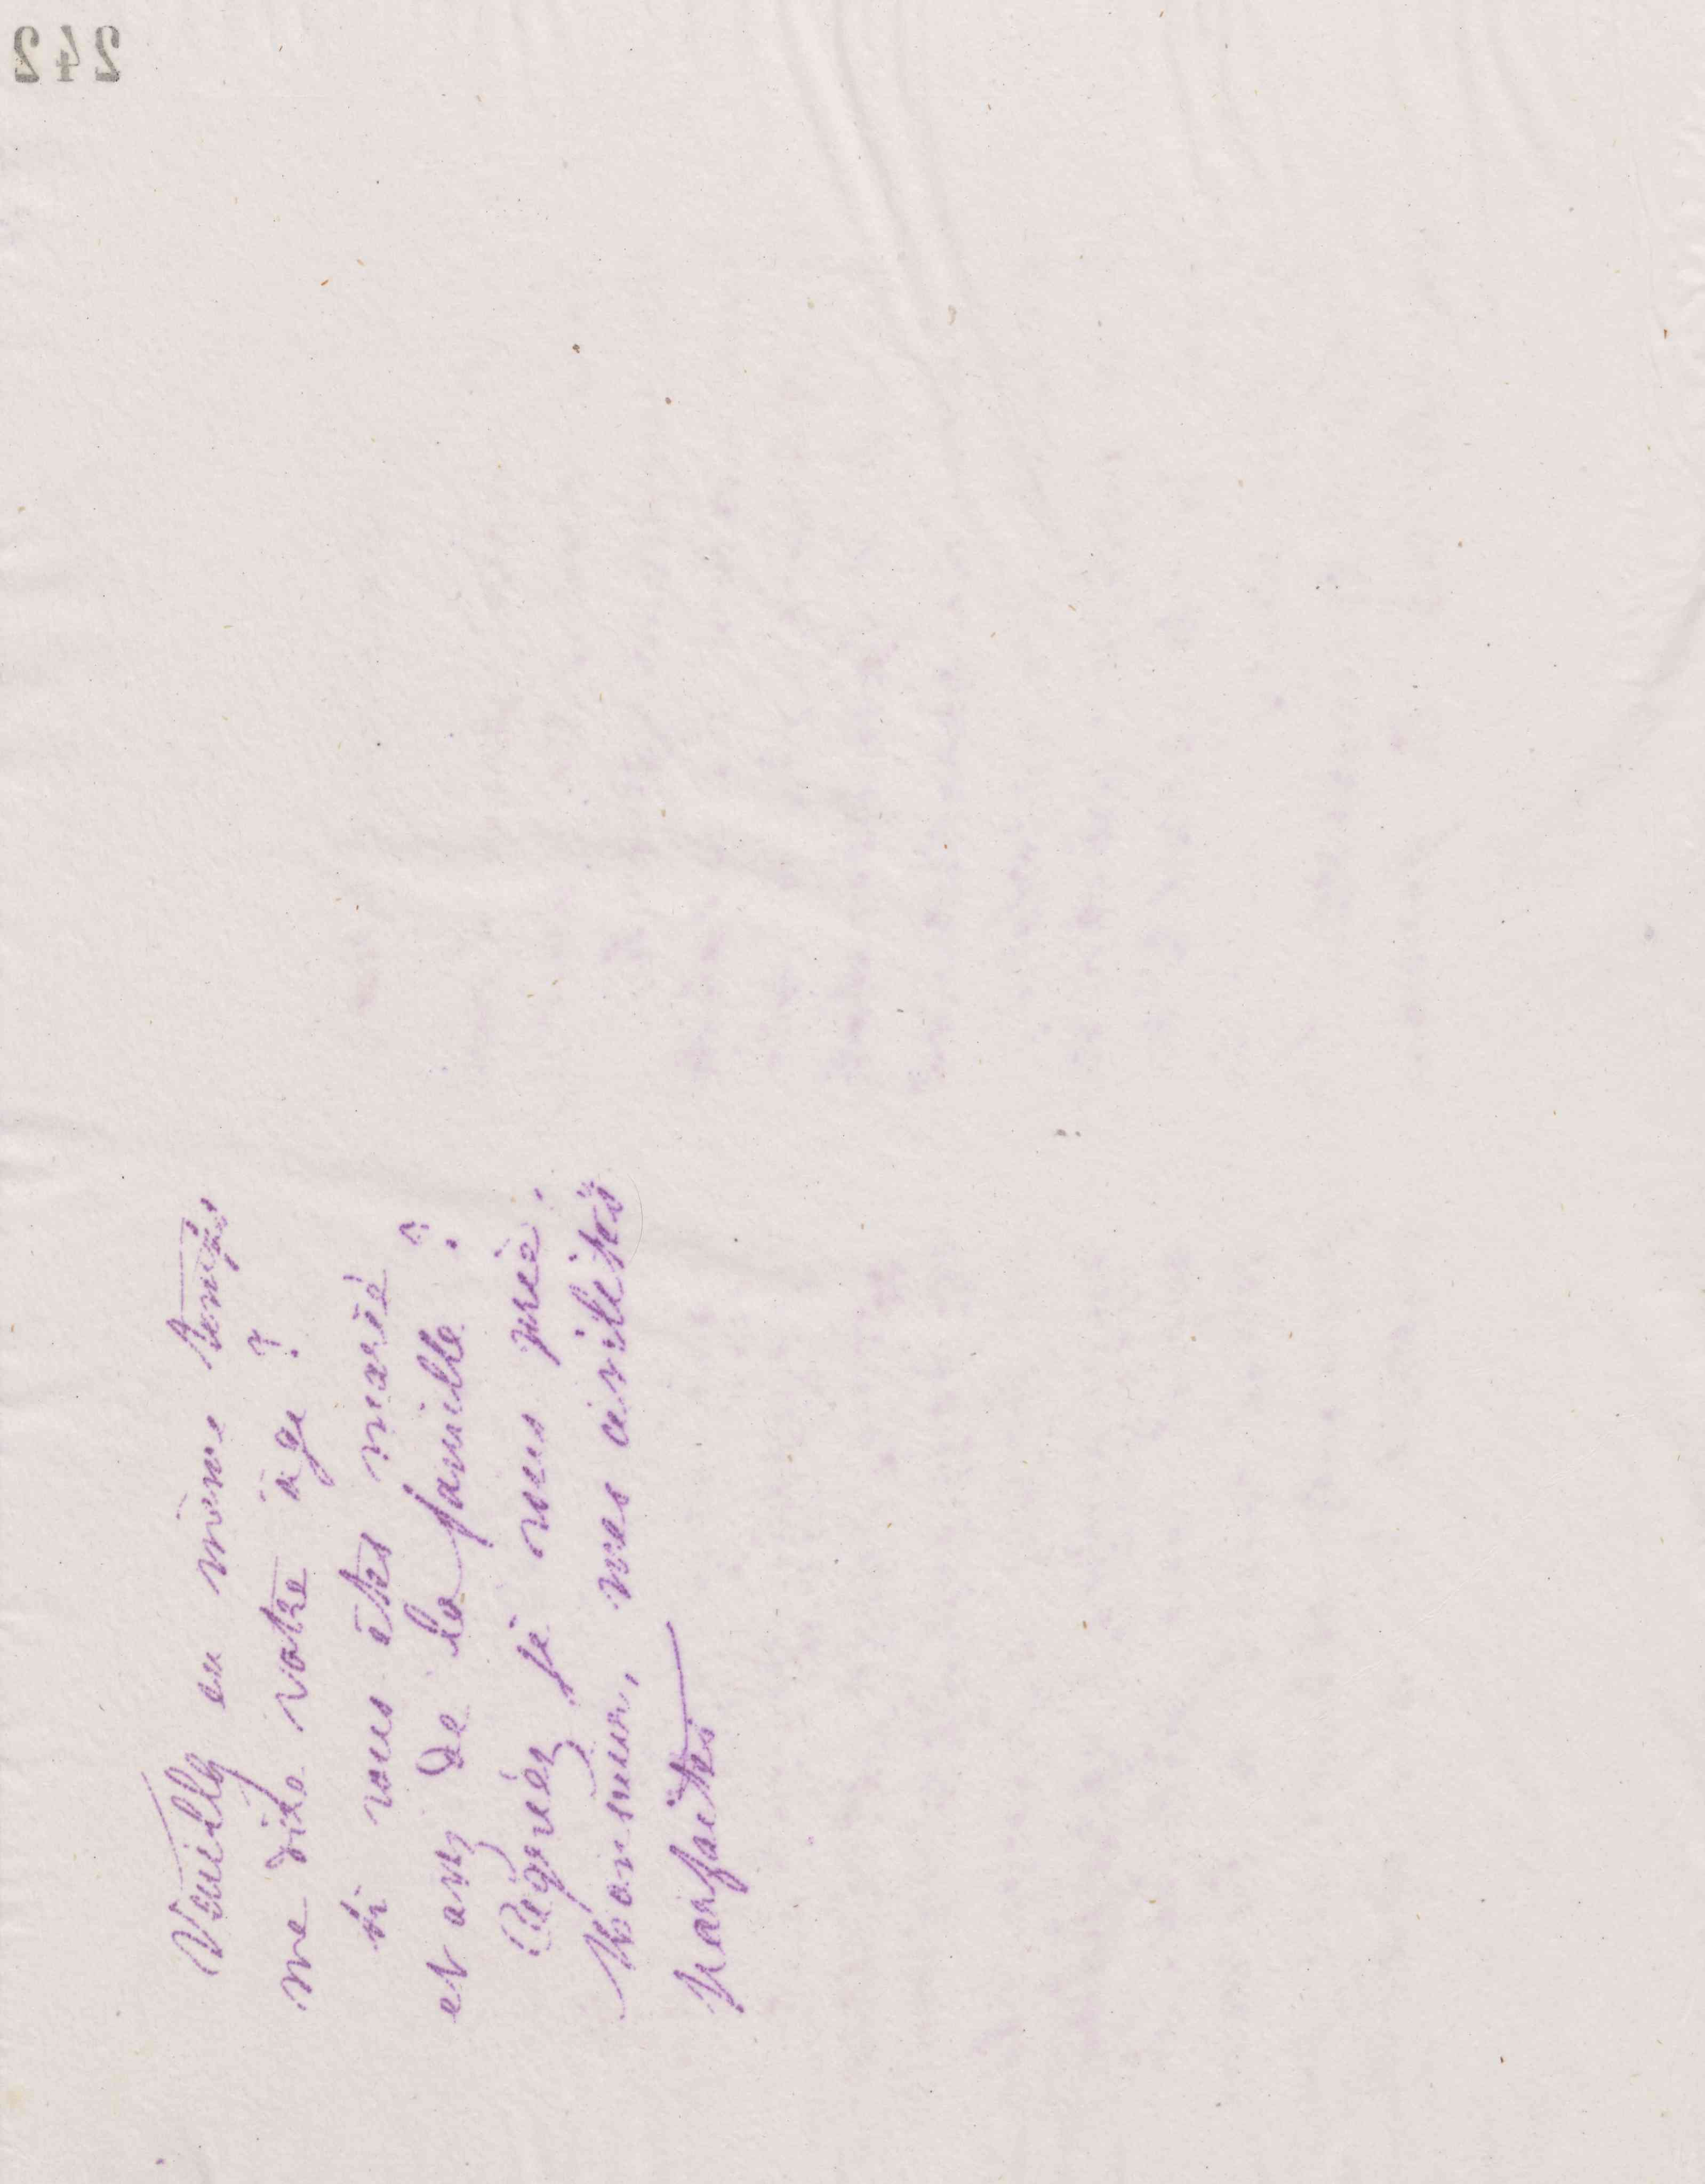 242
Veuillez en même temps
me dire votre âge ?
si vous êtes marié
et avez de la famille ?
Agréez je vous prie.
Monsieur, mes civilités
parfaites